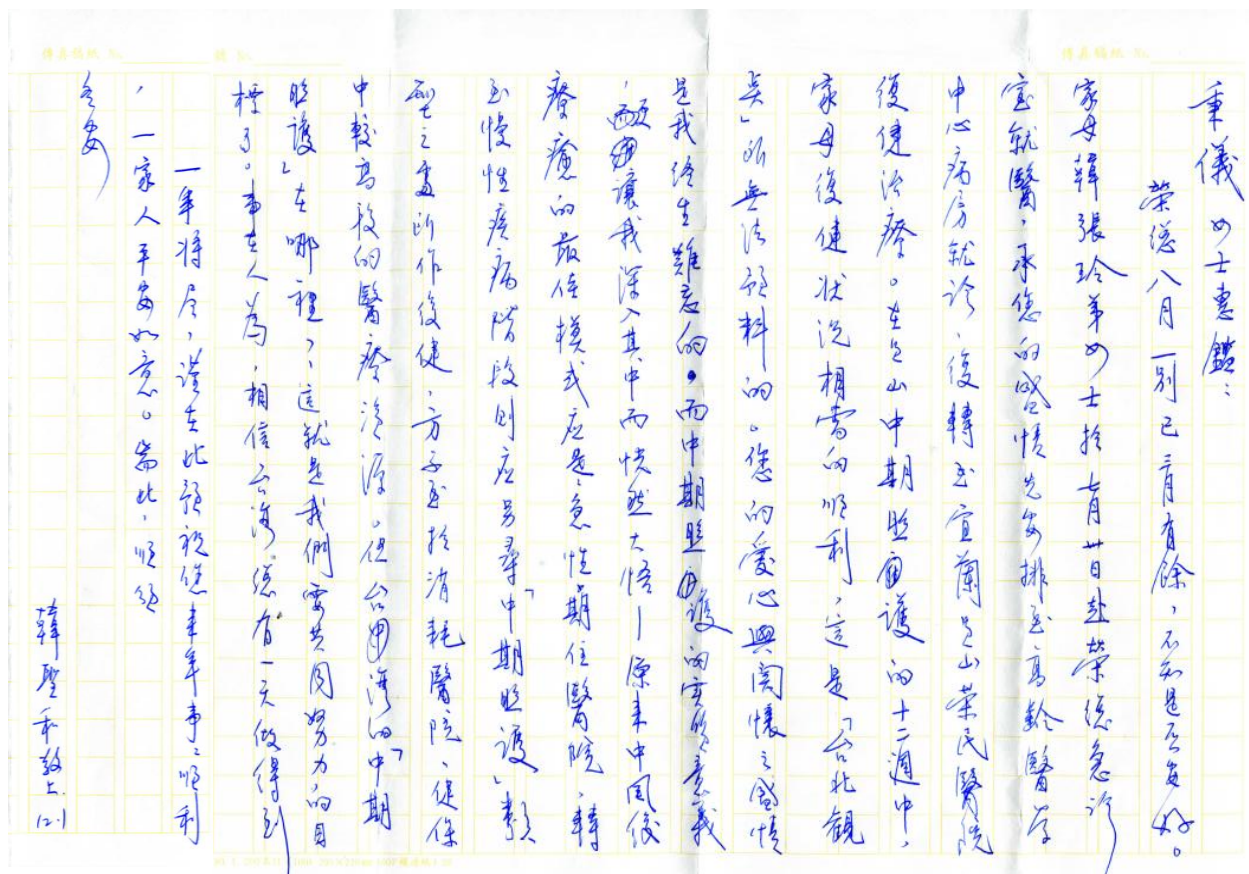 秉儀女士惠鑑：
榮總八月一別已三月有餘，不知是否安好。
家母韓張玲弟女士於七月卅日赴榮總急診
室就醫，承您的盛情先安排至高齡醫學
中心病房就診，後轉至宜蘭員山榮民醫院
復健治療。在員山中期照護的十二週中，
家母復健狀況相當的順利，這是「台北觀
點」所無法預料的。您的愛心與關懷之盛情
是我終生難忘的。而中期照護的實質意義
，讓我深入其中而恍然大悟—原來中風後
療癒的最佳模式應是急性期住醫院，轉
至慢性疾病階段則應另尋「中期照護」類
型之處所作復健，方不至於消耗醫院、健保
中較高段的醫療資源。但台灣的「中期
照護」在哪裡，這就是我們要共同努力的目
標了。事在人為，相信台灣總有一天做得到
一年將盡，謹在此預祝您來年事事順利
，一家人平安如意。耑此，順頌
冬安
韓聖和敬上 12.1
傳真稿紙 No.
傳真稿紙 No.